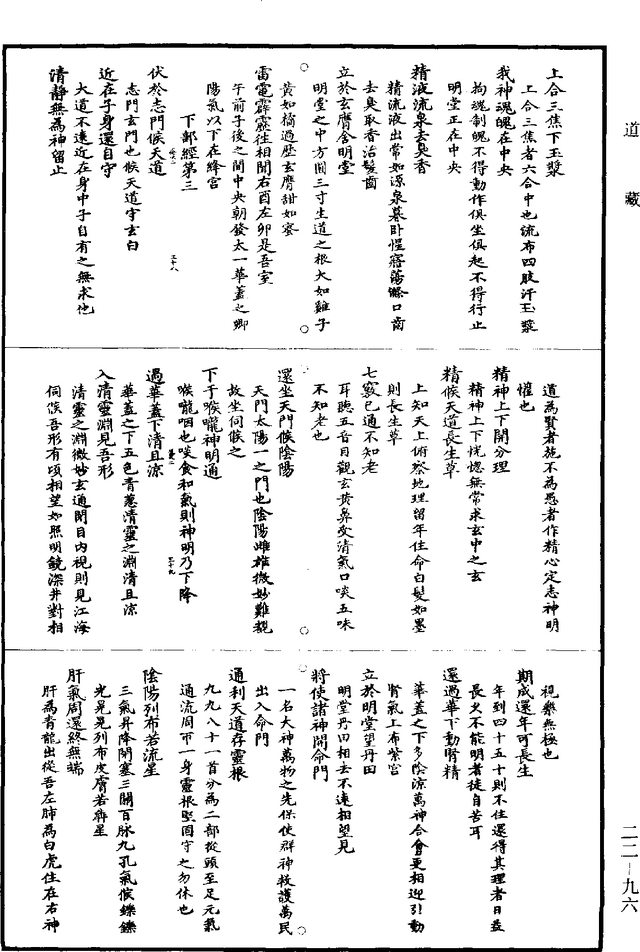 道藏
上合三焦下玉漿
上合三焦者六合中也流布四肢汗玉漿
我神魂魄在中央
拘魂制魄不得動作俱坐俱起不得行止
明堂正在中央
精液流泉去臭香
精流液出常如源泉暮卧惺寤蕩滌口齒
去臭取香治髮齒
立於玄膺含明堂
明堂之中方圓三寸生道之根大如雞子
黃如橘過歷玄膺甜如蜜
雷電霹靂往相聞右酉左卯是吾室
午前子後之間中央朝發太一華蓋之卿
陽氣以下在絳宮
下部經第三
伏於志門候天道
志門玄門也候天道字玄白
近在子身還自守
大道不遠近在身中子自有之無求他
清靜無為神留止
道為賢者施不為愚者作精心定志神明
懼也
精神上下開分理
精神上下恍惚無常求玄中之玄
精候天道長生草
上知天上俯察地理留年住命白髮如墨
則長生草
七竅已通不知老
耳聽五音目觀玄黃鼻受清氣口啖五味
不知老也
還坐天門候陰陽
天門太陽一之門也陰陽雌雄微妙難親
故坐伺候之
下于喉嚨神明通
喉嚨咽也啖食和氣則神明乃下降
過華蓋下清且涼
華蓋之下五色青蔥清靈之淵清且涼
入清靈淵見吾形
清靈之淵微妙玄通閉目內視則見江海
伺候吾形有頃相望如照明鏡深井對相
視樂無極也
期成還年可長生
年到四十五十則不住還得其理者日益
長久不能明者徒自苦耳
還過華下動腎精
華蓋之下多陰涼萬神合會更相迎引動
腎氣上布紫宮
立於明堂望丹田
明堂丹田相去不遠相望見
將使諸神開命門
一名大神萬物之先保使群神救護萬民
出入命門
通利天道存靈根
九九八十一首分為二部從頭至足元氣
通流周帀一身靈根堅固守之勿休也
陰陽列布若流星
三氣升降閉塞三關百脉九孔氣候鑠鑠
光晃晃列布皮膚若犇星
肝氣周還終無端
肝為青龍出從吾左肺為白虎住在右神
二二—九六